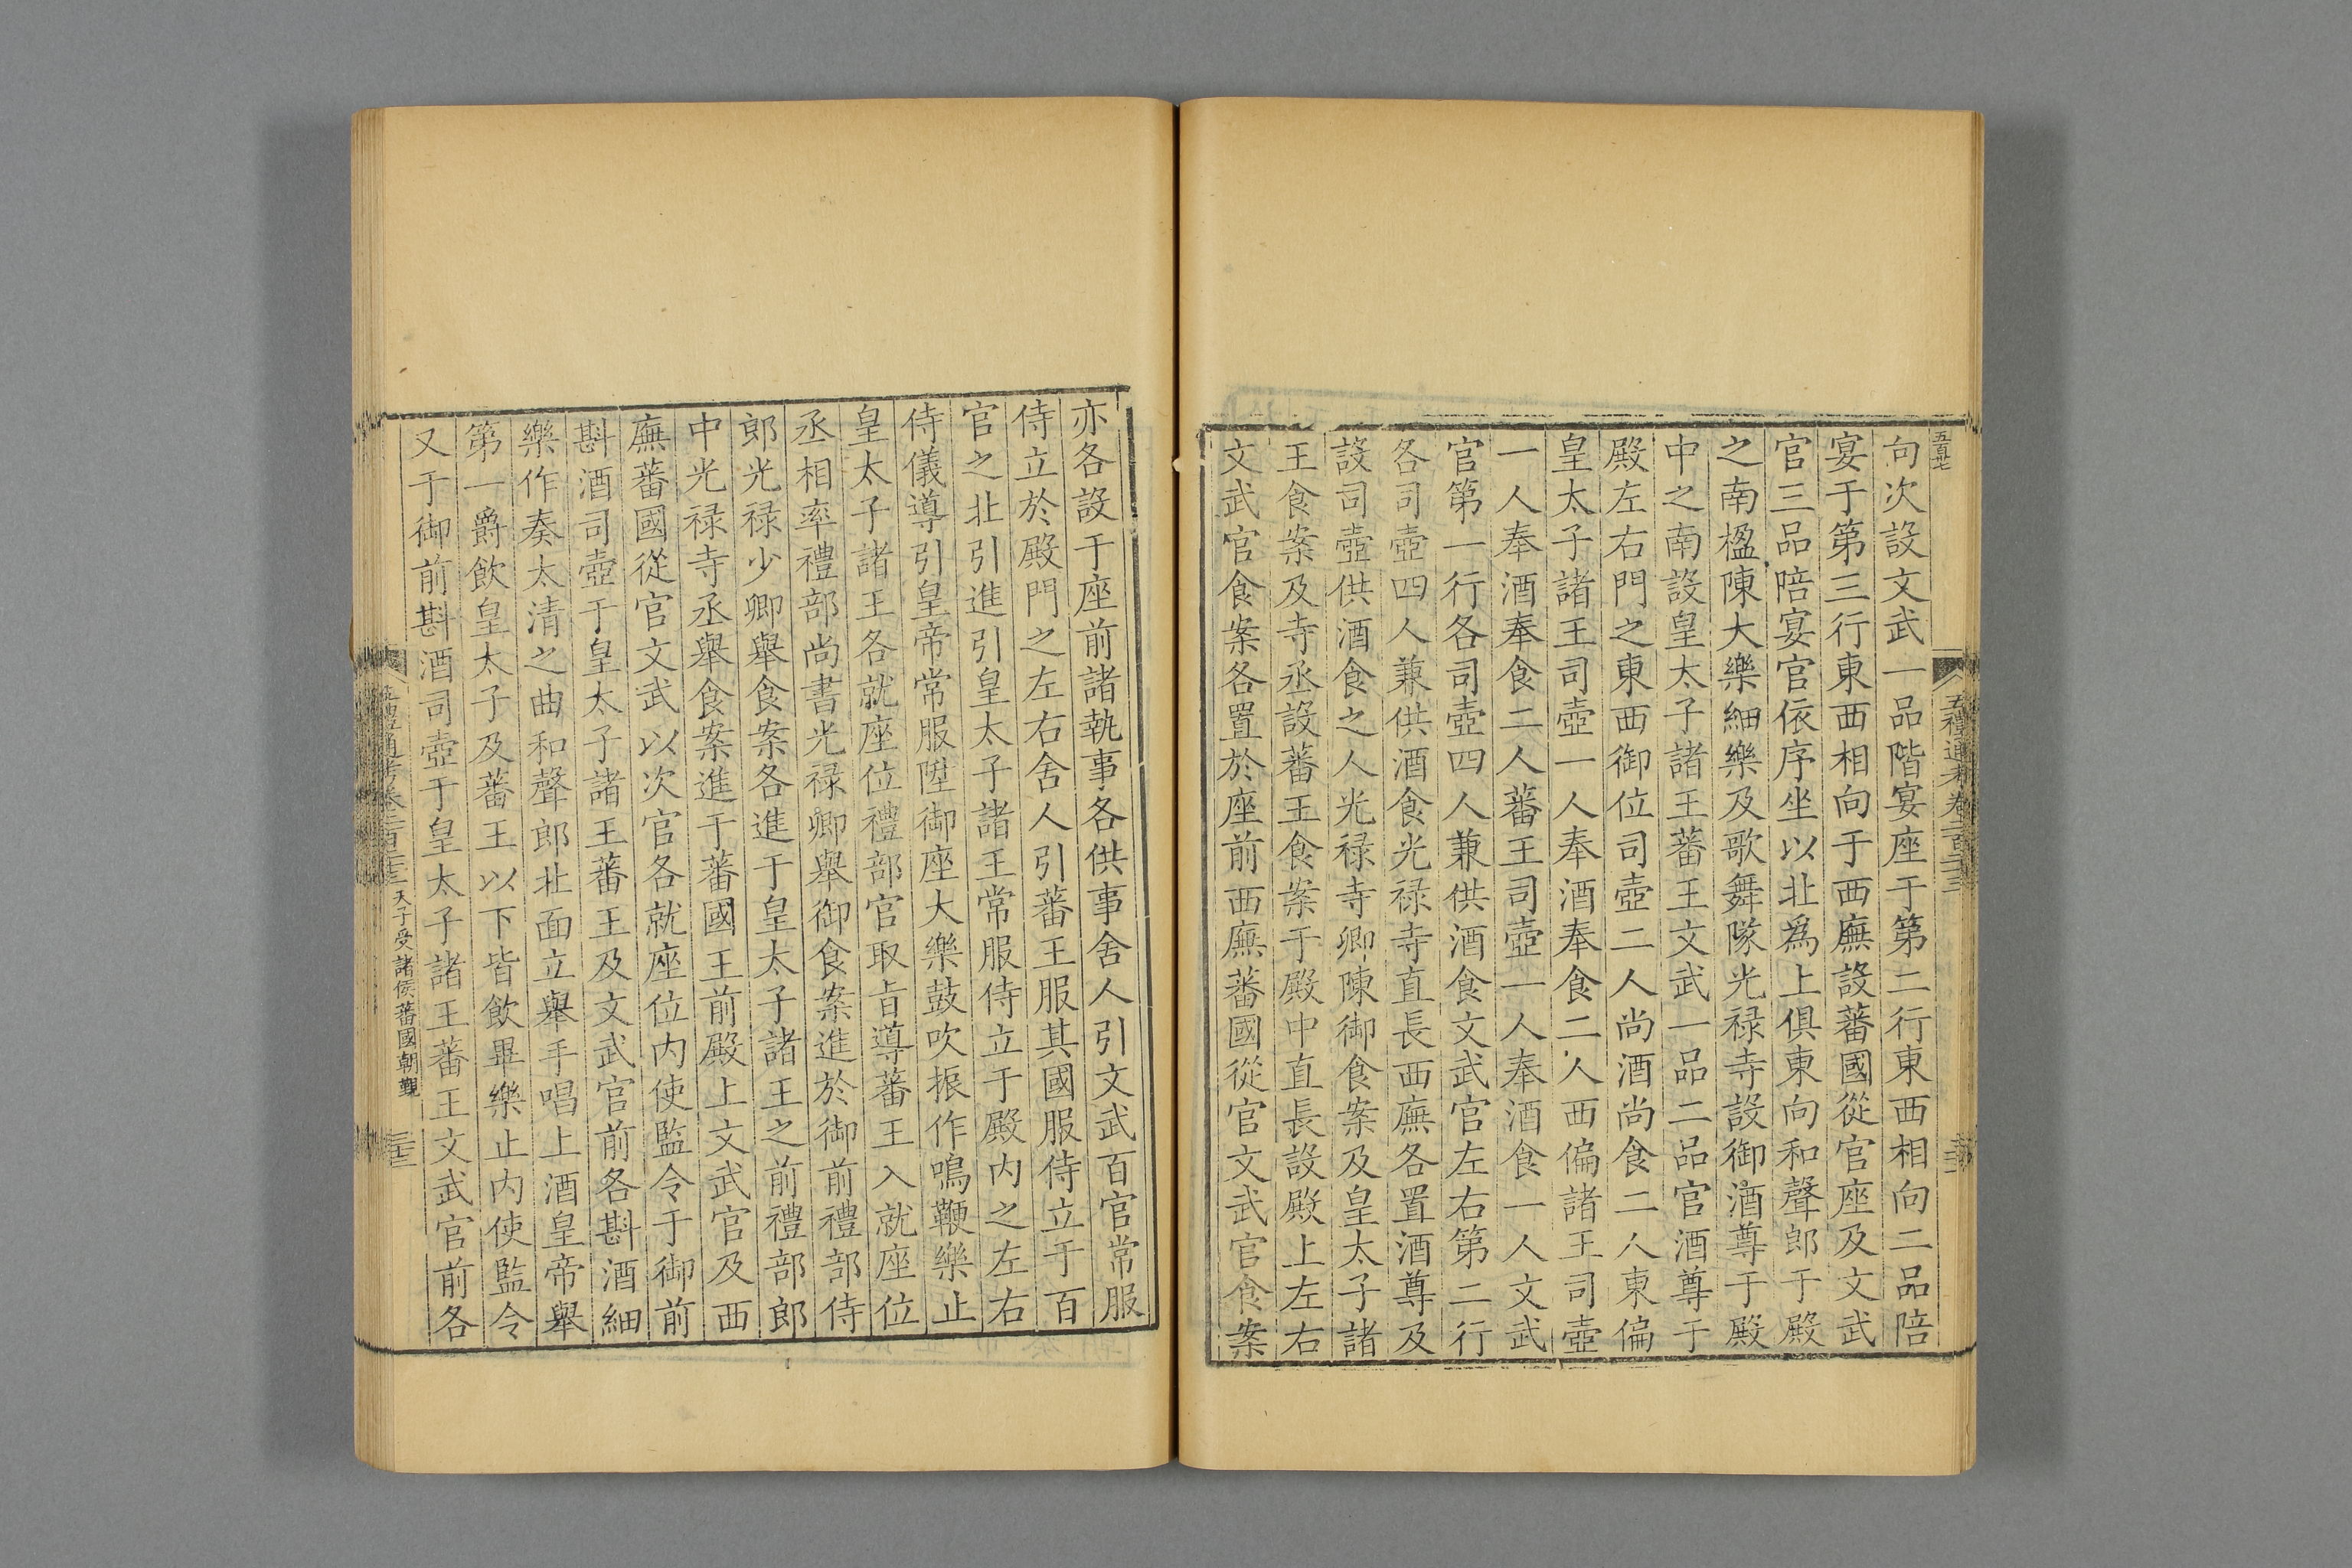 五百七
五禮通考卷二百二十三
向次設文武一品階宴座于第二行東西相向二品陪
宴于第三行東西相向于西廡設蕃國從官座及文武
官三品陪宴官依序坐以北爲上俱東向和聲郎于殿
之南楹陳大樂細樂及歌舞隊光禄寺設御酒尊于殿
中之南設皇太子諸王蕃王文武一品二品官酒尊于
殿左右門之東西御位司壺二人尚酒尚食二人東偏
皇太子諸王司壺一人奉酒奉食二人西偏諸王司壺
一人奉酒奉食二人蕃王司壺一人奉酒食一人文武
官第一行各司壺四人兼供酒食文武官左右第二行
各司壺四人兼供酒食光禄寺直長西廡各置酒尊及
設司壺供酒食之人光禄寺卿陳御食案及皇太子諸
王食案及寺丞設蕃王食案于殿中直長設殿上左右
文武官食案各置於座前西廡蕃國從官文武官食案
亦各設于座前諸執事各供事舍人引文武百官常服
侍立於殿門之左右舍人引蕃王服其國服侍立于百
官之北引進引皇太子諸王常服侍立于殿内之左右
侍儀導引皇帝常服陞御座大樂鼓吹振作鳴鞭樂止
皇太子諸王各就座位禮部官取旨導蕃王入就座位
丞相率禮部尚書光禄卿舉御食案進於御前禮部侍
郎光禄少卿舉食案各進于皇太子諸王之前禮部郎
中光禄寺丞舉食案進于蕃國王前殿上文武官及西
廡蕃國從官文武以次官各就座位内使監令于御前
斟酒司壺于皇太子諸王蕃王及文武官前各斟酒細
樂作奏太清之曲和聲郎北面立舉手唱上酒皇帝舉
第一爵飲皇太子及蕃王以下皆飲畢樂止内使監令
又于御前斟酒司壺于皇太子諸王蕃王文武官前各
五禮通考卷二百二十三 天子受諸侯蕃國朝覲 三十三